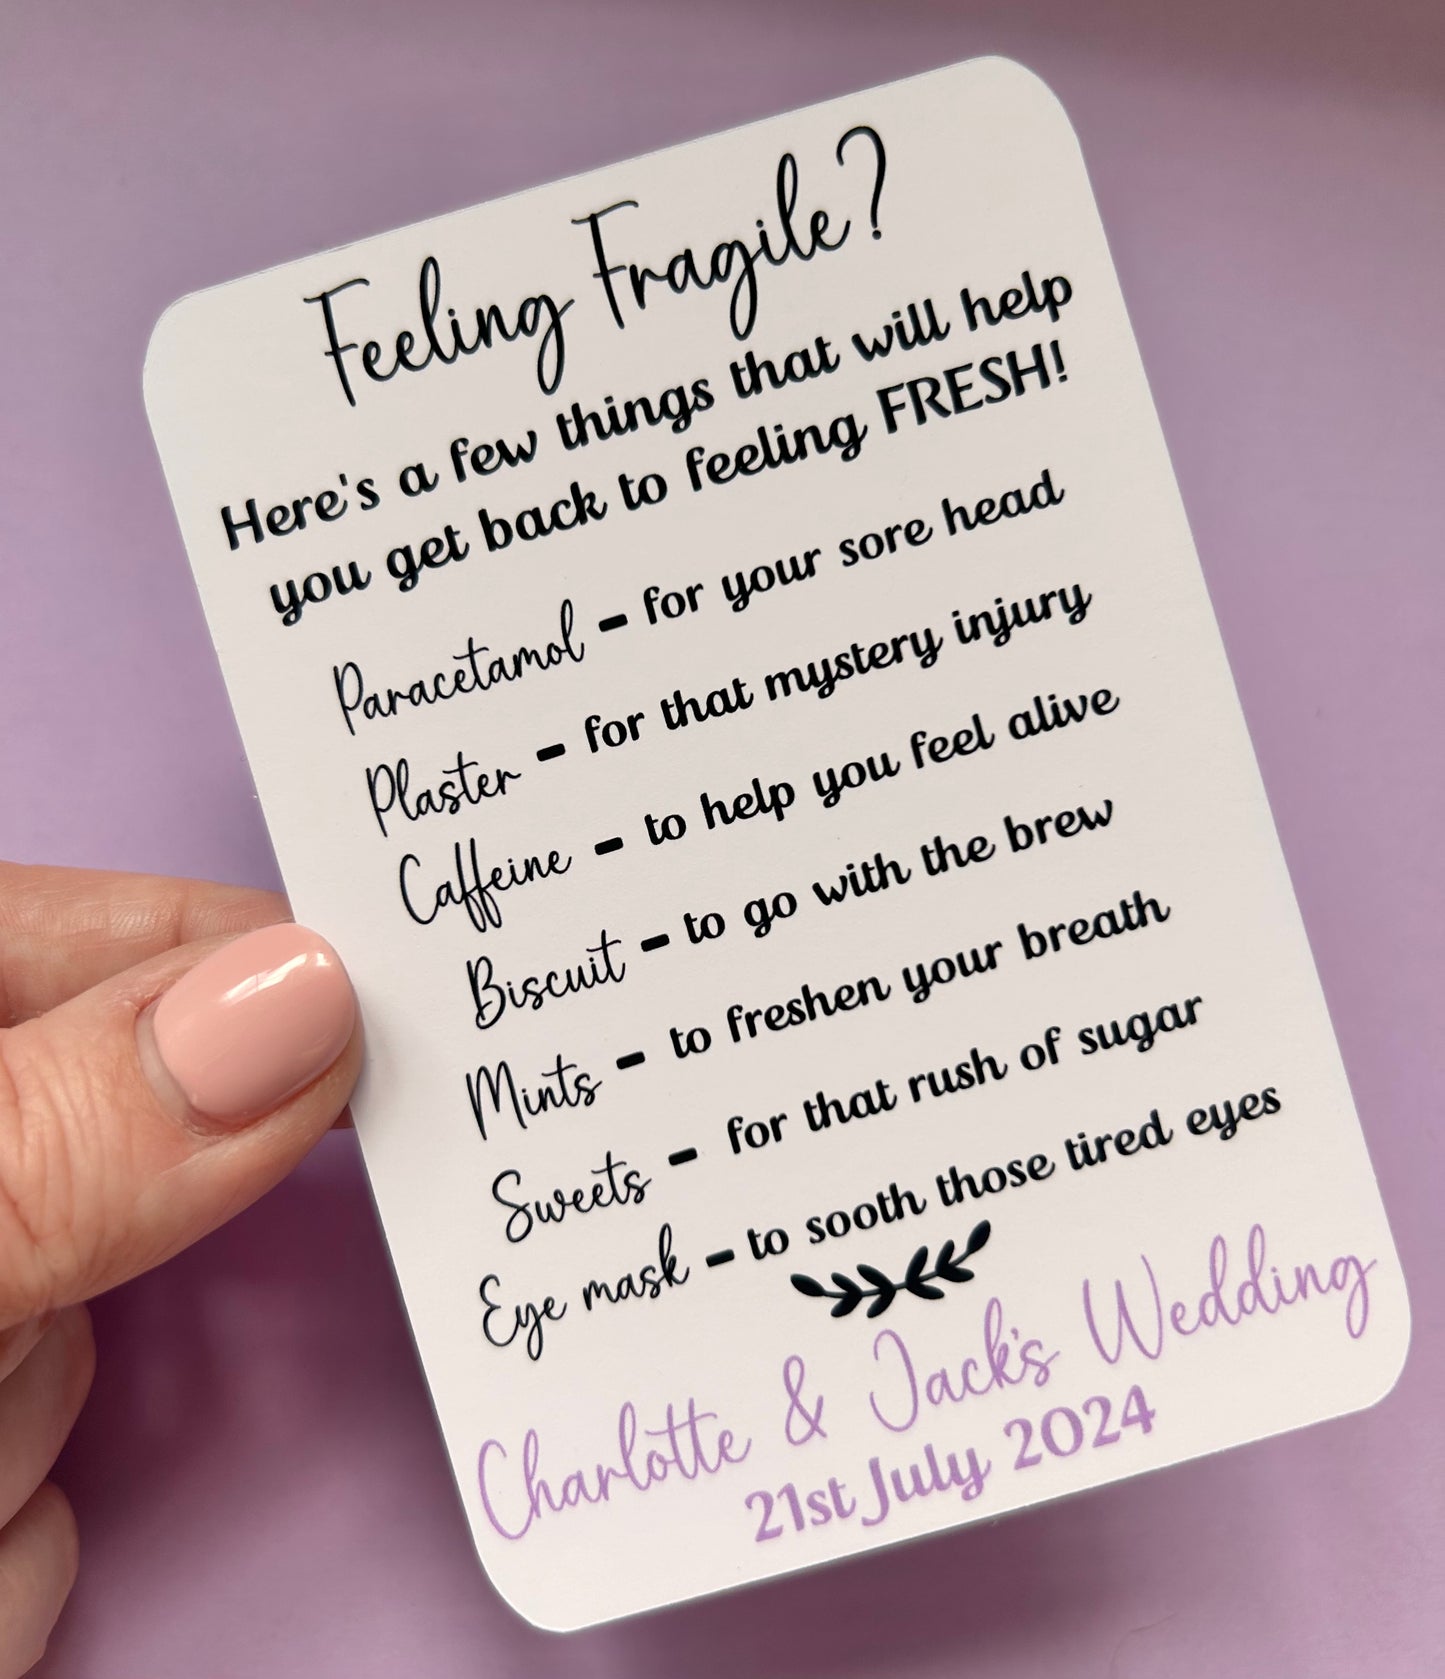 Feeling Fragile?
Here's a few things that will help
you get back to feeling FRESH!
Paracetamol - for your sore head
Plaster - for that mystery injury
Caffeine - to help you feel alive
Biscuit - to go with the brew
Mints - to freshen your breath
Sweets - for that rush of sugar
Eye mask - to sooth those tired eyes
Charlotte & Jack's Wedding
21st July 2024